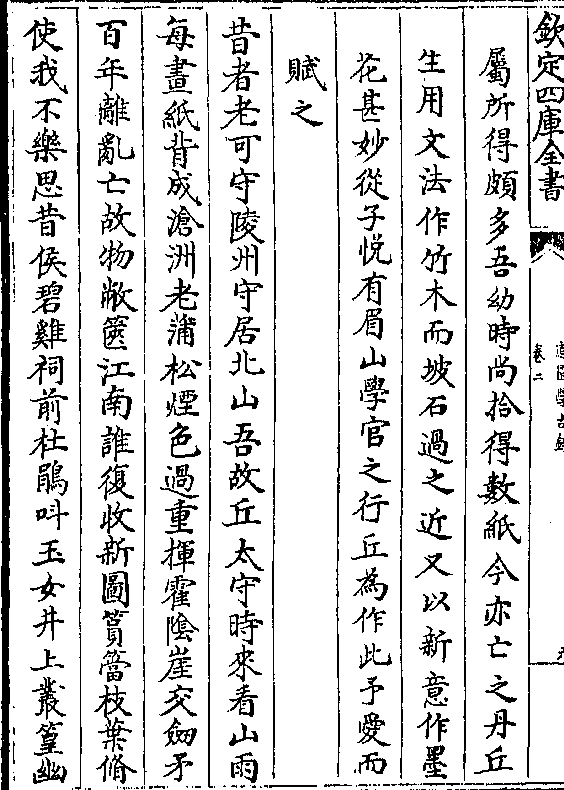 欽定四庫全書
道園學古錄
卷二
九
屬所得頗多吾幼時尚拾得數紙今亦亡之丹丘
生用文法作竹木而坡石過之近又以新意作墨
花甚妙從子悅有眉山學官之行丘為作此予愛而
賦之
昔者老可守陵州守居北山吾故丘太守時來看山雨
每畫紙背成滄洲老蒲松煙色過重揮霍陰崖交劒矛
百年離亂亡故物敝篋江南誰復收新圖篔簹枝葉脩
使我不樂思昔侯碧雞祠前杜鵑呌玉女井上叢篁幽